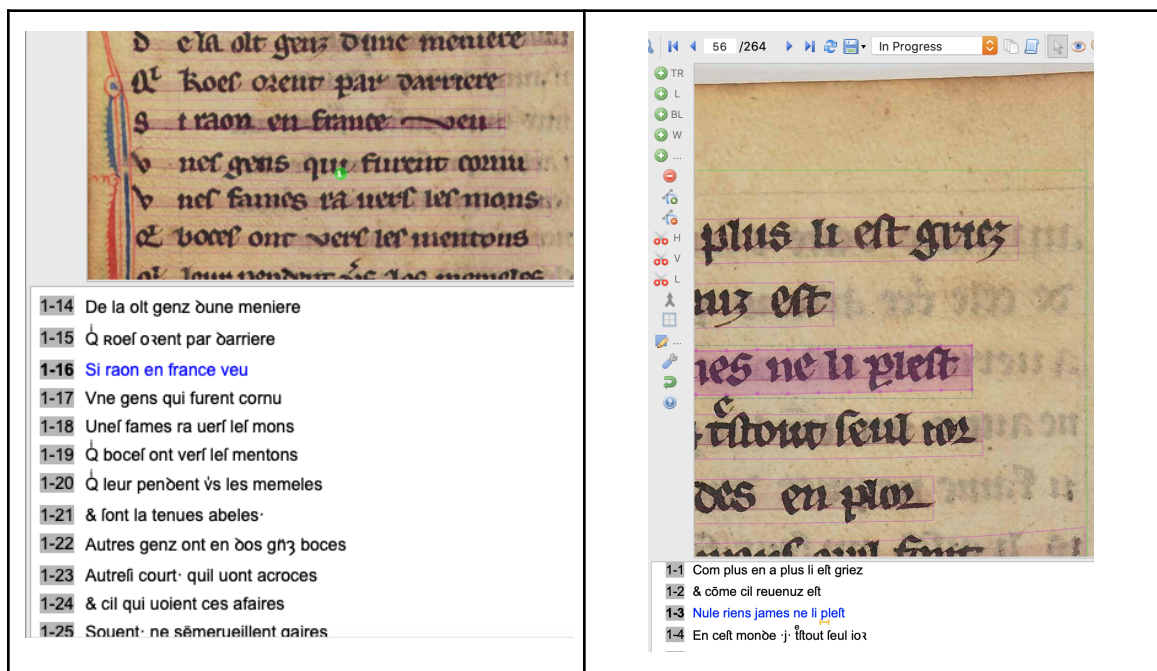 d e la olt genz dune meniere
Qͥ koeſ oꝛent par darriere
S i raon en france veu
v neſ gens qui furent cornu
v neſ fames ra uerſ leſ mons
Qͥ boceſ ont verſ leſ mentons
Qͥ leur pendent v̾s les memeles
1-14 De la olt genz ꝺune meniere
1-15 Qͥ ʀoeſ oꝛent par ꝺarriere
1-16 Si raon en france veu
1-17 Vne gens qui furent cornu
1-18 Uneſ fames ra uerſ leſ mons
1-19 Qͥ boceſ ont verſ leſ mentons
1-20 Qͥ leur penꝺent v̾s les memeles
1-21 & ſont la tenues abeles·
1-22 Autres genz ont en ꝺos gñʒ boces
1-23 Autreſi court· quil uont acroces
1-24 & cil qui uoient ces afaires
1-25 Souent· ne sēmerueillent gaires
56 /264 In Progress
TR
L
BL
W
...
H
V
L
...
plus li eſt griez
nuz eſt
nes ne li pleſt
tͤſtout ſeul ioꝛ
des en ploꝛ
1-1 Com plus en a plus li eſt griez
1-2 & cōme cil reuenuz eſt
1-3 Nule riens james ne li pleſt
1-4 En ceſt monꝺe ·j· tͤſtout ſeul ioꝛ